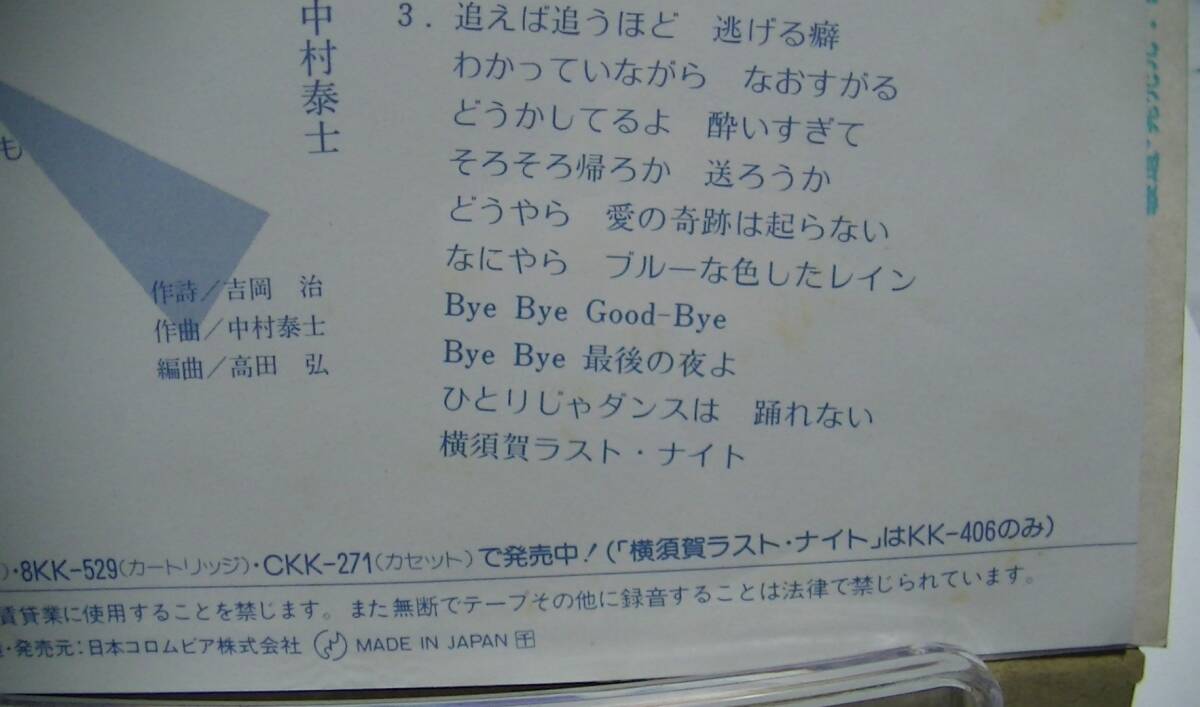 中村泰士
も
作詩/吉岡　治
作曲/中村泰士
編曲/高田　弘
3. 追えば追うほど　逃げる癖
わかっていながら　なおすがる
どうかしてるよ　酔いすぎて
そろそろ帰ろか　送ろうか
どうやら　愛の奇跡は起らない
なにやら　ブルーな色したレイン
Bye Bye Good-Bye
Bye Bye 最後の夜よ
ひとりじゃダンスは　踊れない
横須賀ラスト・ナイト
)・8KK-529(カートリッジ)・CKK-271(カセット)で発売中!(「横須賀ラスト・ナイト」はKK-406のみ)
賃貸業に使用することを禁じます。また無断でテープその他に録音することは法律で禁じられています。
・発売元:日本コロムビア株式会社 MADE IN JAPAN